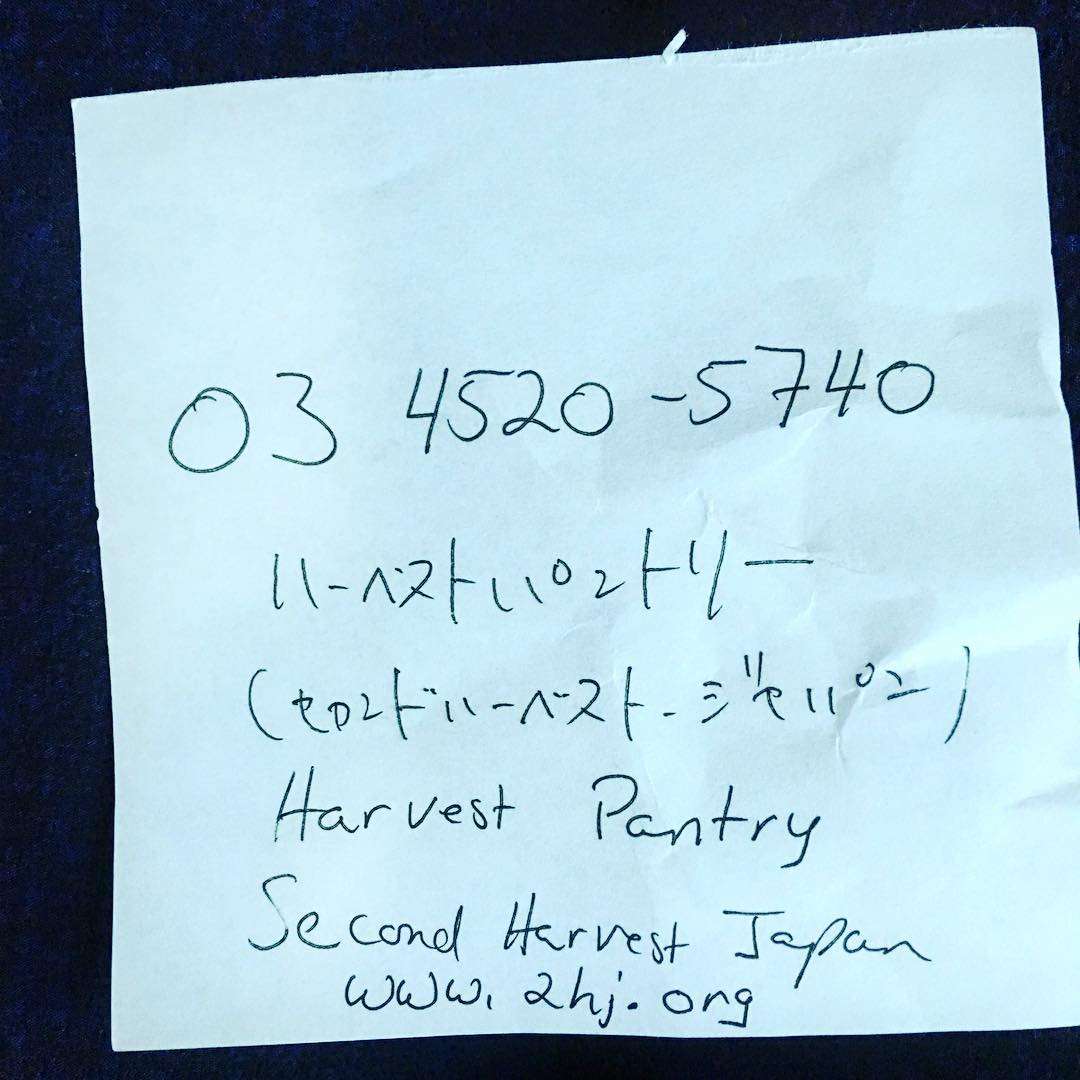 03 4520-5740
ハーベストパントリー
(セカンドハーベスト-ジャパン)
Harvest Pantry
Second Harvest Japan
www.2hj.org